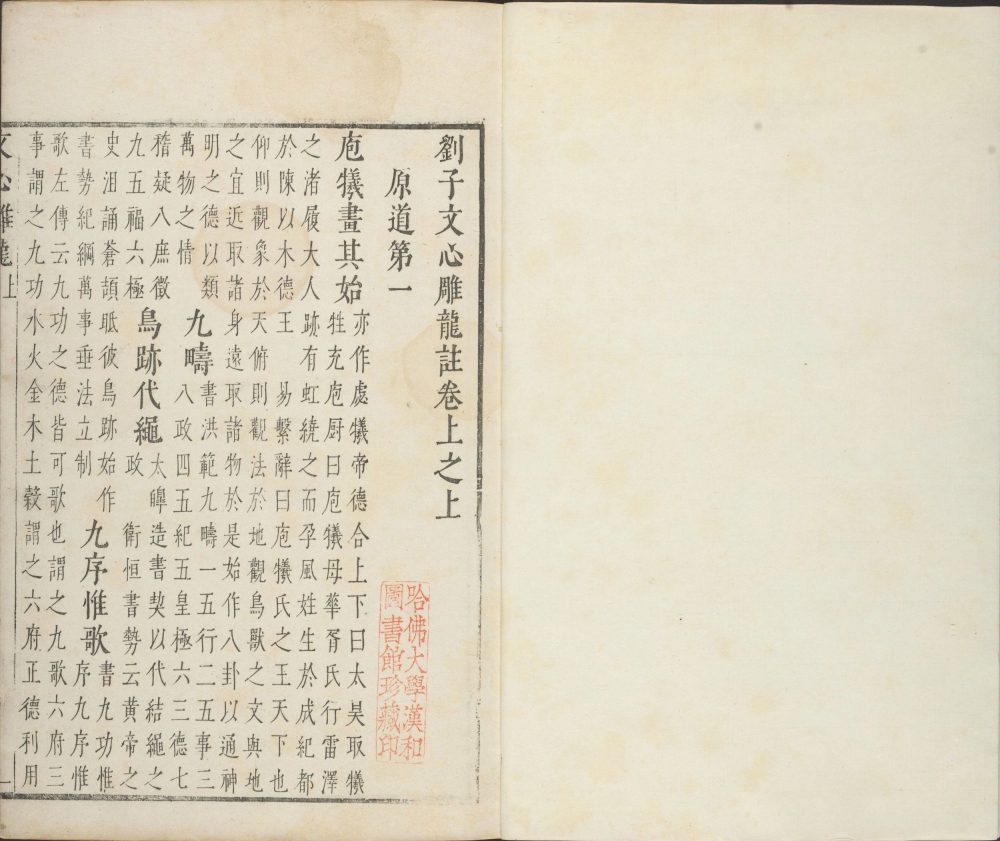 劉子文心雕龍註卷上之上
原道第一
庖犧畫其始
亦作處犧帝德合上下曰太昊取犧
牲充庖厨曰庖犧母華胥氏行雷澤
之渚履大人跡有虹繞之而孕風姓生於成紀都
於陳以木德王　易繫辭曰庖犧氏之王天下也
仰則觀象於天俯則觀法於地觀鳥獸之文與地
之宜近取諸身遠取諸物於是始作八卦以通神
明之德以類
萬物之情
九疇
書洪範九疇一五行二五事三
八政四五紀五皇極六三德七
稽疑八庶徵
九五福六極
鳥跡代繩
太皥造書契以代結繩之
政　衛恒書勢云黃帝之
史沮誦蒼頡眂彼鳥跡始作
書勢紀綱萬事垂法立制
九序惟歌
書九功惟
序九序惟
歌左傳云九功之德皆可歌也謂之九歌六府三
事謂之九功水火金木土穀謂之六府正德利用
文心雕龍上
一
哈佛大學漢和
圖書館珍藏印